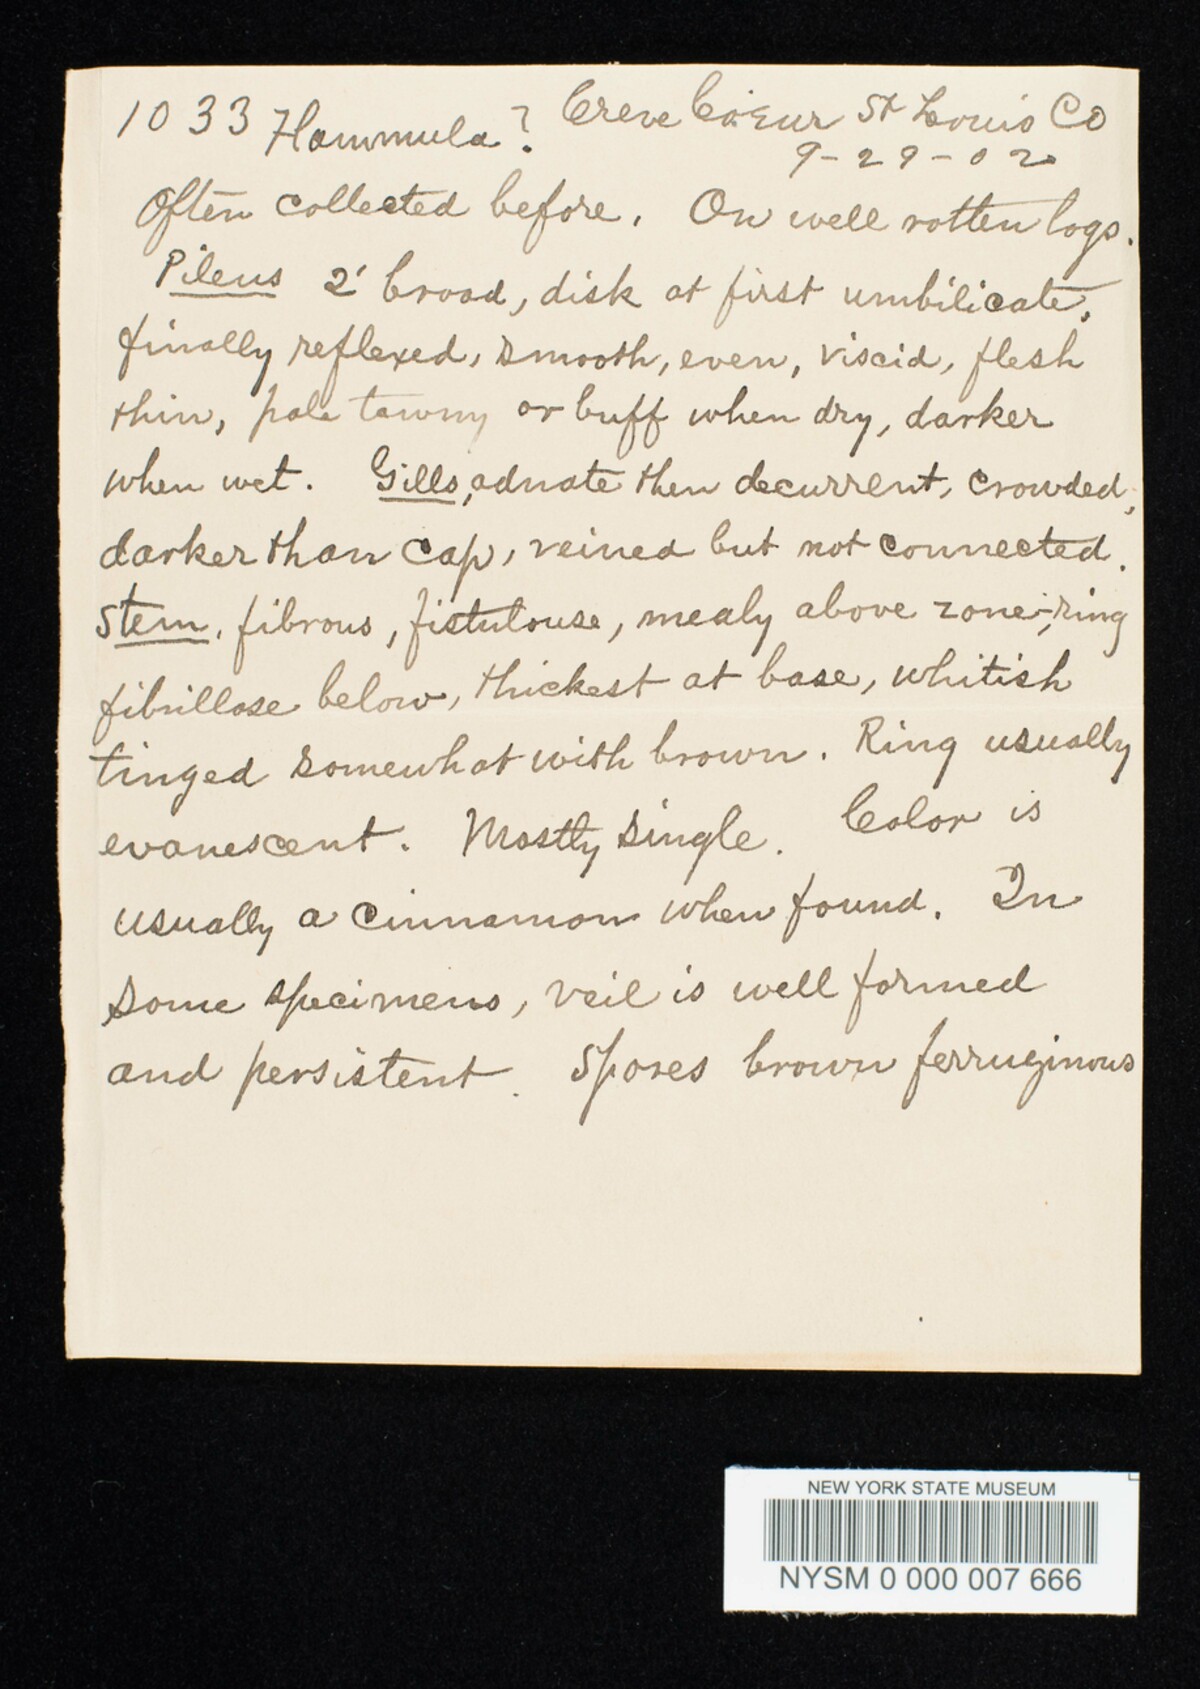 1033 Flammula? Creve Coeur St Louis Co
9-29-02
Often collected before. On well rotten logs.
Pileus 2' broad, disk at first umbilicate,
finally reflexed, smooth, even, viscid, flesh
thin, pale tawny or buff when dry, darker
when wet. Gills, adnate then decurrent, crowded,
darker than cap, veined but not connected.
Stem, fibrous, fistulouse, mealy above zone-ring
fibrillose below, thickest at base, whitish
tinged somewhat with brown. Ring usually
evanescent. Mostly single. Color is
usually a cinnamon when found. In
some specimens, veil is well formed
and persistent. Spores brown ferruginous
NEW YORK STATE MUSEUM
NYSM 0 000 007 666